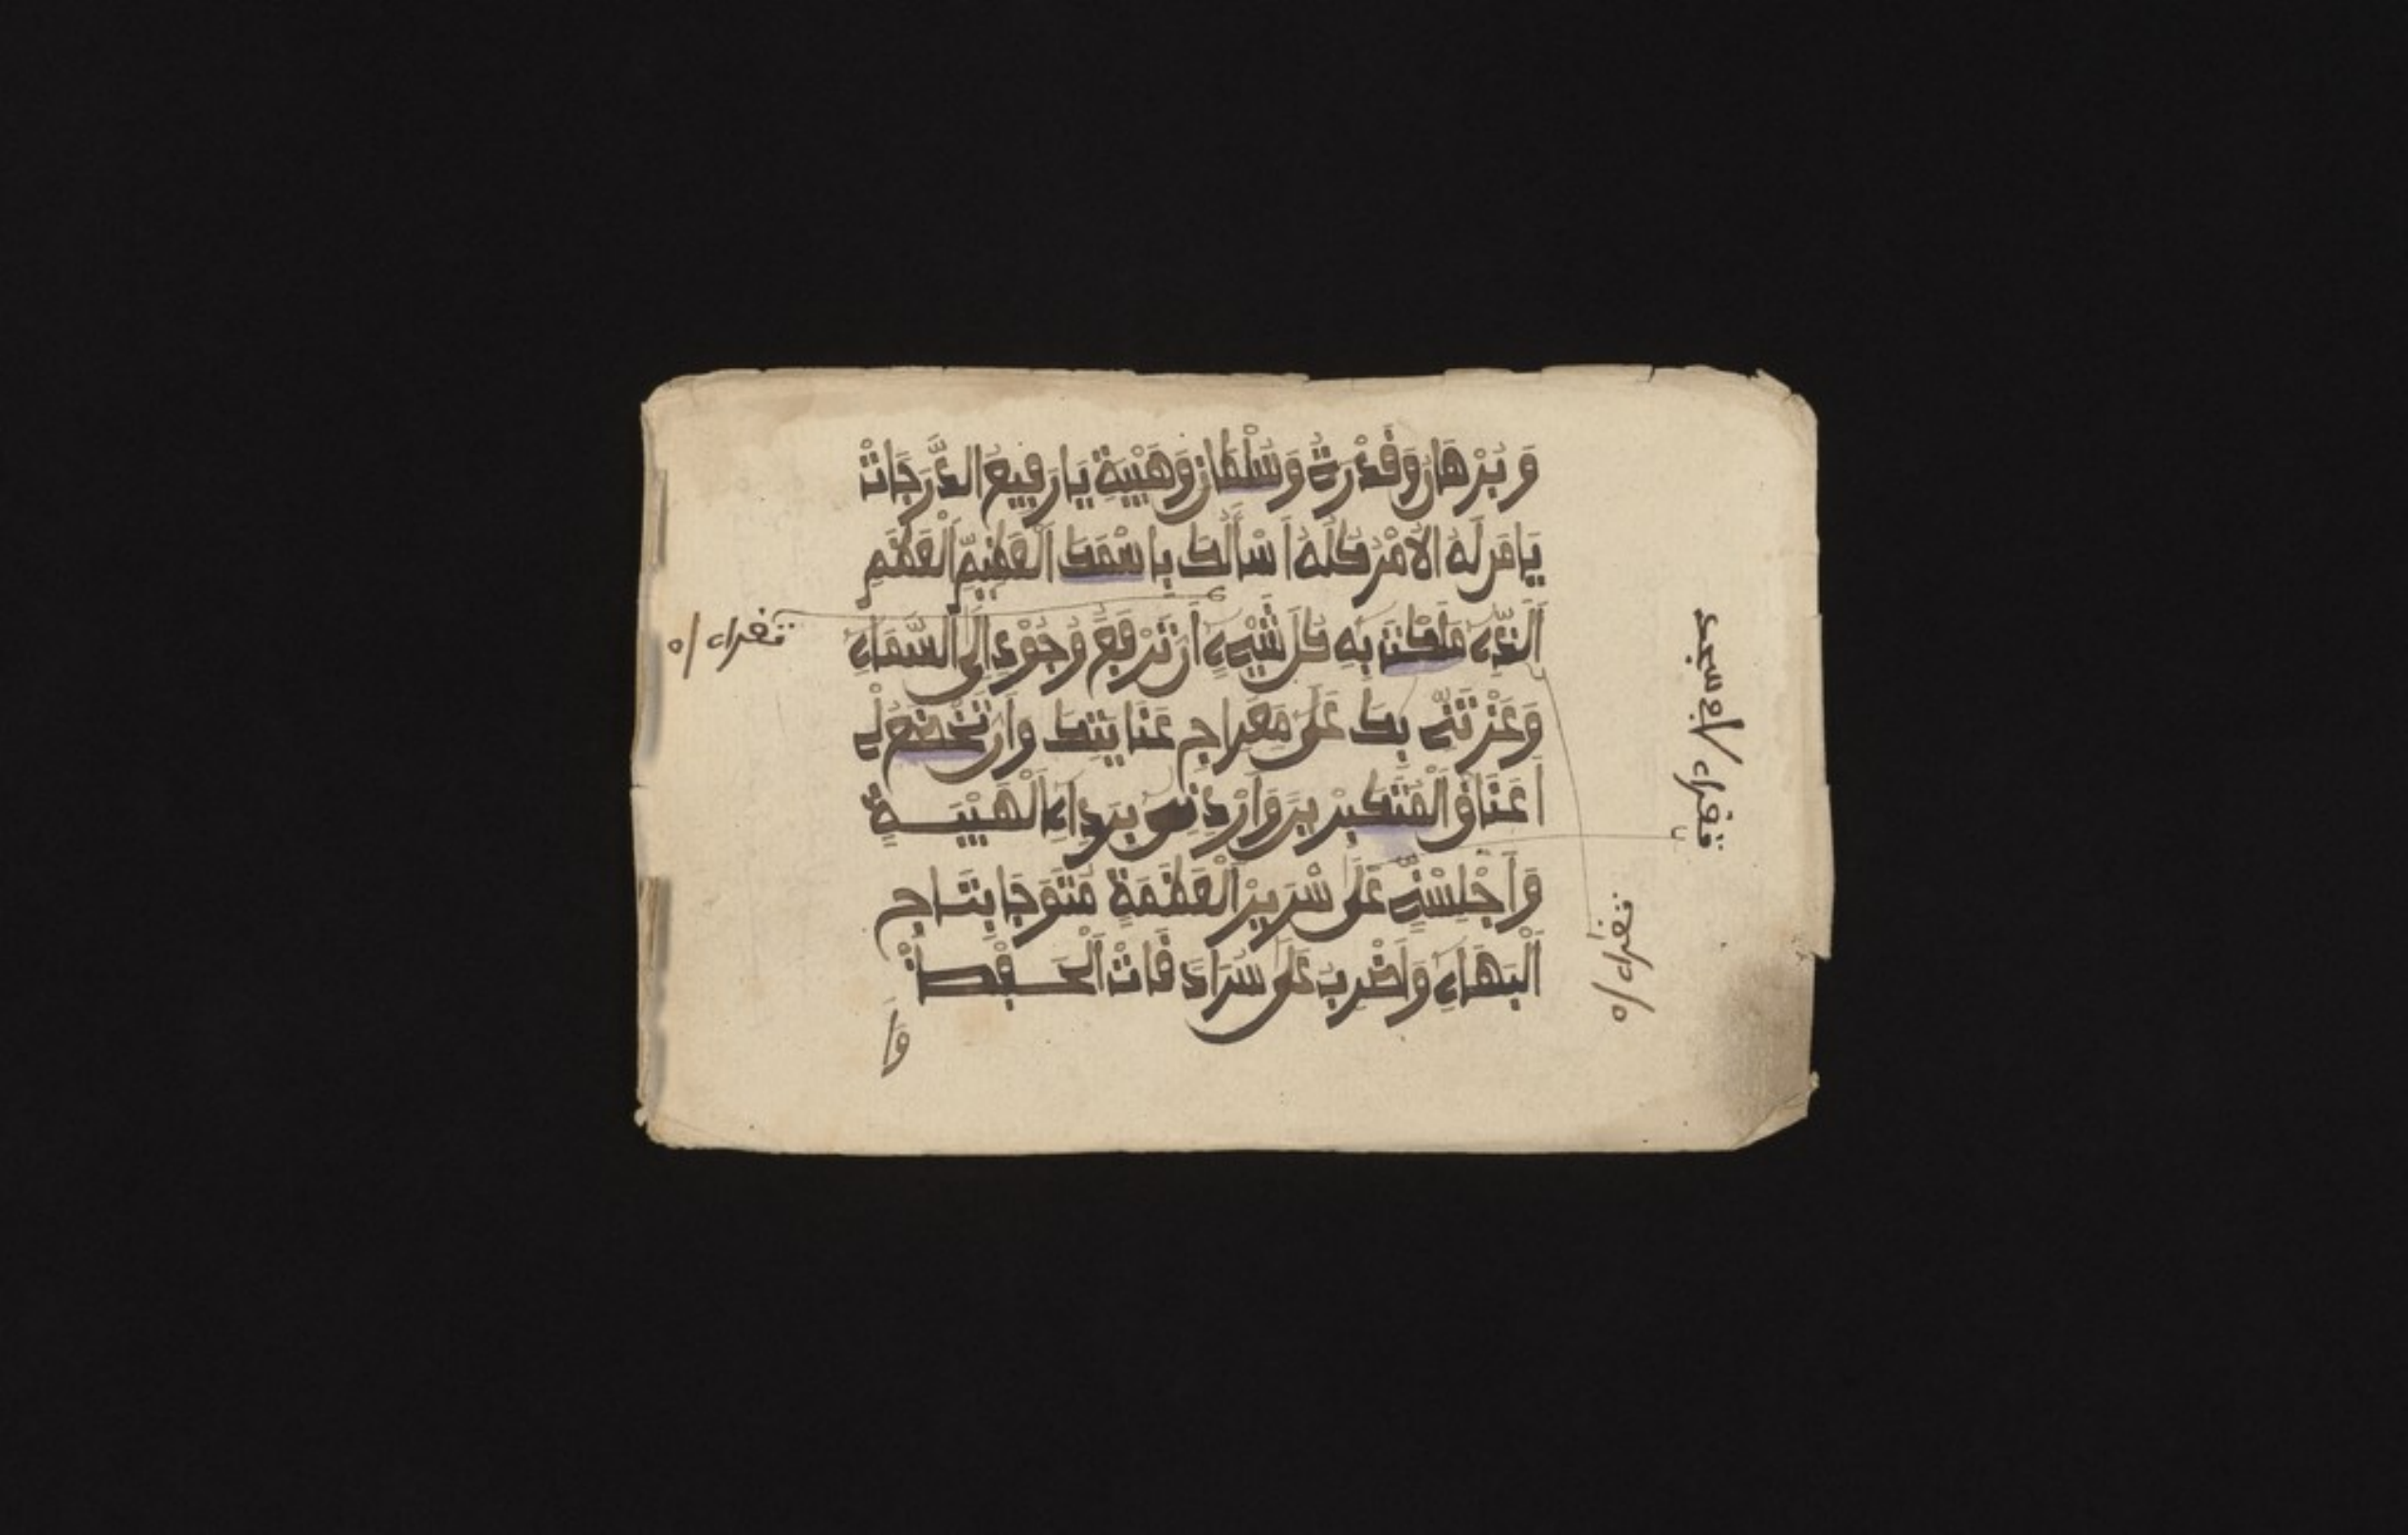 وَبُرْهَانٍ وَقُدْرَةٍ وَسُلْطَانٍ وَهَيْبَةٍ يَا رَفِيعُ الدَّرَجَاتْ
يَا مَن لَهُ الأَمْرُ كُلُّهُ أَسْأَلُكَ بِاسْمِكَ الْعَظِيمِ الْعَظَمِ
الَّذِي مَلَكْتَ بِهِ كُلَّ شَيْءٍ أَن تَرْفَعَ وُجُودِي إِلَى السَّمَاءِ
وَعَزَّتَنِي بِكَ عَلَى مَعْرَاجِ عَنَايَتِكَ وَأَن تَخْضَعَ لِي
أَعْنَاقُ الْمُتَكَبِّرِينَ وَارْدِنِي بِرِدَاءِ الْهَيْبَةِ
وَأَجْلِسْنِي عَلَى سَرِيرِ الْعَظَمَةِ مُتَوَّجًا بِتَاجِ
الْبَهَاءِ وَاضْرِبْ عَلَى سُرَادِقَاتْ الْحِفْظِ
وَا
تقراء
تقراء
تقراء